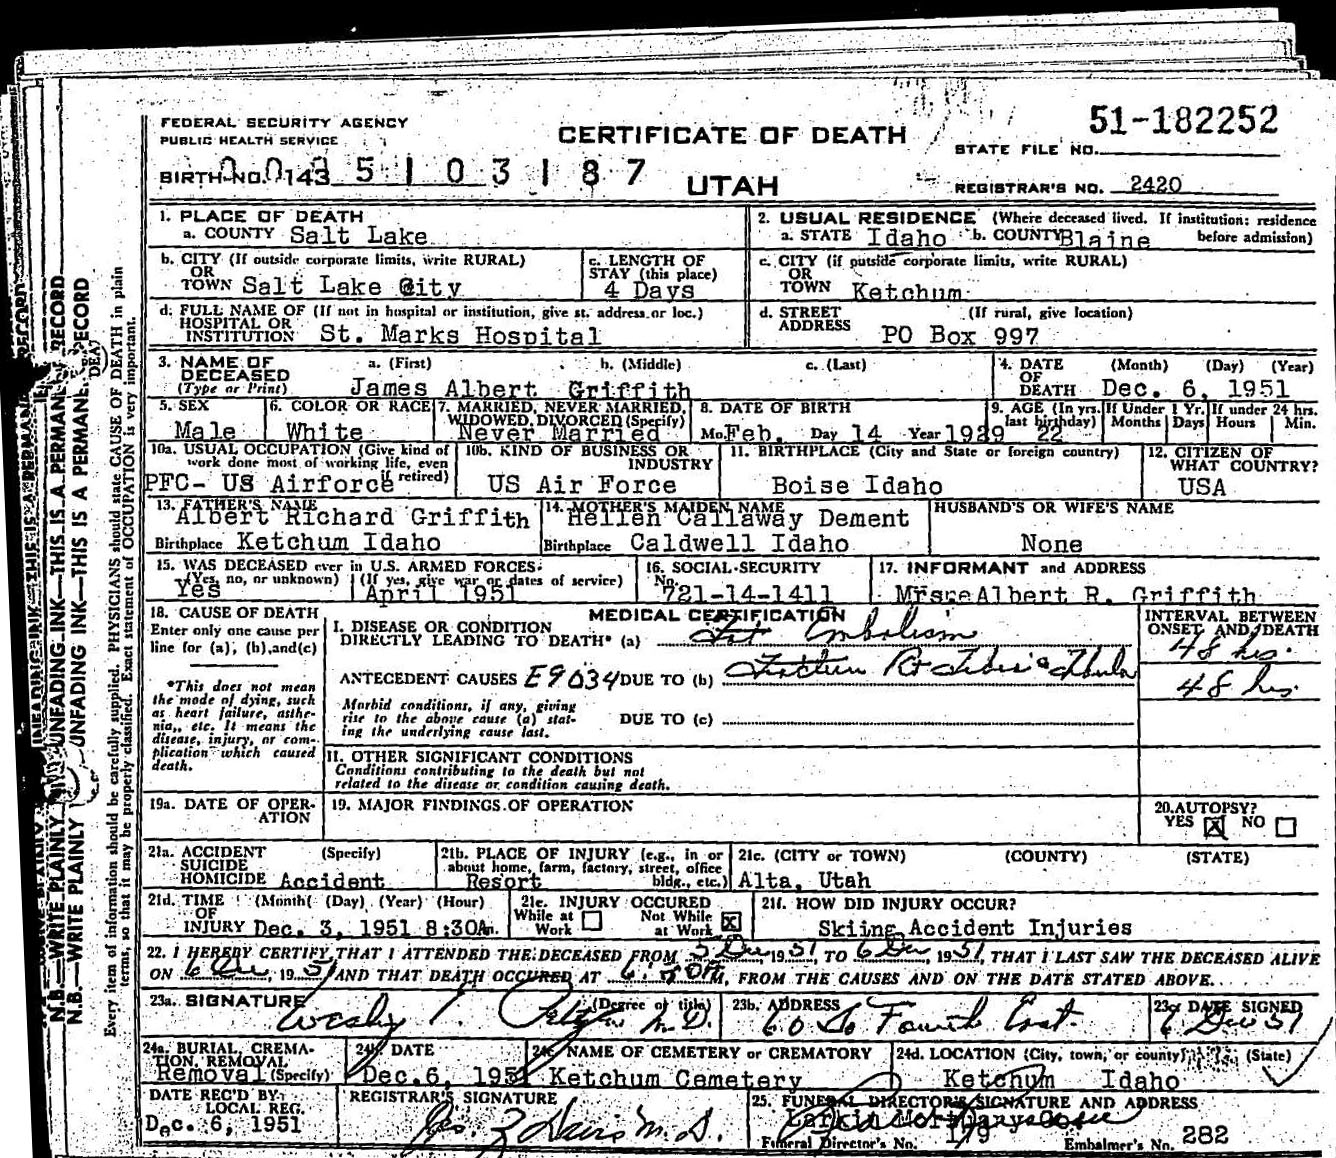 51-182252
FEDERAL SECURITY AGENCY
PUBLIC HEALTH SERVICE
CERTIFICATE OF DEATH
STATE FILE NO.
BIRTH NO. 143 5 1 0 3 1 8 7
UTAH
REGISTRAR'S NO. 2420
1. PLACE OF DEATH
a. COUNTY Salt Lake
2. USUAL RESIDENCE (Where deceased lived. If institution: residence before admission)
a. STATE Idaho b. COUNTY Blaine
b. CITY (If outside corporate limits, write RURAL)
OR
TOWN Salt Lake City
c. LENGTH OF
STAY (this place)
4 Days
c. CITY (if outside corporate limits, write RURAL)
OR
TOWN Ketchum
d. FULL NAME OF (If not in hospital or institution, give st. address or loc.)
HOSPITAL OR
INSTITUTION St. Marks Hospital
d. STREET (If rural, give location)
ADDRESS PO Box 997
3. NAME OF DECEASED (Type or Print)
a. (First) b. (Middle) c. (Last)
James Albert Griffith
4. DATE OF DEATH (Month) (Day) (Year)
Dec. 6, 1951
5. SEX
Male
6. COLOR OR RACE
White
7. MARRIED, NEVER MARRIED,
WIDOWED, DIVORCED (Specify)
Never Married
8. DATE OF BIRTH
Mo. Feb. Day 14 Year 1929
9. AGE (In yrs. last birthday) 22
If Under 1 Yr. Months Days
If under 24 hrs. Hours Min.
10a. USUAL OCCUPATION (Give kind of
work done most of working life, even
if retired)
PFC- US Airforce
10b. KIND OF BUSINESS OR
INDUSTRY
US Air Force
11. BIRTHPLACE (City and State or foreign country)
Boise Idaho
12. CITIZEN OF
WHAT COUNTRY?
USA
13. FATHER'S NAME
Albert Richard Griffith
Birthplace Ketchum Idaho
14. MOTHER'S MAIDEN NAME
Hellen Callaway Dement
Birthplace Caldwell Idaho
HUSBAND'S OR WIFE'S NAME
None
15. WAS DECEASED ever in U.S. ARMED FORCES?
(Yes, no, or unknown) (If yes, give war or dates of service)
Yes April 1951
16. SOCIAL SECURITY
No.
721-14-1411
17. INFORMANT and ADDRESS
Albert R. Griffith
18. CAUSE OF DEATH
Enter only one cause per
line for (a), (b), and (c)
*This does not mean
the mode of dying, such
as heart failure, asthe-
nia, etc. It means the
disease, injury, or com-
plication which caused
death.
MEDICAL CERTIFICATION
I. DISEASE OR CONDITION
DIRECTLY LEADING TO DEATH* (a) Fat Embolism
INTERVAL BETWEEN
ONSET AND DEATH
48 hrs.
ANTECEDENT CAUSES E9034 DUE TO (b) Fracture Rt Tibia & Fibula
48 hrs.
Morbid conditions, if any, giving
rise to the above cause (a) stat-
ing the underlying cause last.
DUE TO (c)
II. OTHER SIGNIFICANT CONDITIONS
Conditions contributing to the death but not
related to the disease or condition causing death.
19a. DATE OF OPER-
ATION
19. MAJOR FINDINGS OF OPERATION
20. AUTOPSY?
YES X NO
21a. ACCIDENT (Specify)
SUICIDE
HOMICIDE Accident
21b. PLACE OF INJURY (e.g., in or
about home, farm, factory, street, office
bldg., etc.)
Resort
21c. (CITY or TOWN) (COUNTY) (STATE)
Alta, Utah
21d. TIME (Month) (Day) (Year) (Hour)
OF
INJURY Dec. 3, 1951 8:30Am.
21e. INJURY OCCURED
While at Work
Not While at Work X
21f. HOW DID INJURY OCCUR?
Skiing Accident Injuries
22. I HEREBY CERTIFY THAT I ATTENDED THE DECEASED FROM 5 Dec 1951, TO 6 Dec, 1951, THAT I LAST SAW THE DECEASED ALIVE
ON 6 Dec, 1951 AND THAT DEATH OCCURED AT M, FROM THE CAUSES AND ON THE DATE STATED ABOVE.
23a. SIGNATURE (Degree or title)
M.D.
23b. ADDRESS
60 So Fourth East.
23c. DATE SIGNED
6 Dec 51
24a. BURIAL, CREMA-
TION, REMOVAL
Removal (Specify)
24b. DATE
Dec. 6, 1951
24c. NAME OF CEMETERY or CREMATORY
Ketchum Cemetery
24d. LOCATION (City, town, or county) (State)
Ketchum Idaho
DATE REC'D BY
LOCAL REG.
Dec. 6, 1951
REGISTRAR'S SIGNATURE
Davis M.D.
25. FUNERAL DIRECTOR'S SIGNATURE AND ADDRESS
Larkin Mortuary
Funeral Director's No. 179 Embalmer's No. 282
N.B.—WRITE PLAINLY
UNFADING INK—THIS IS A PERMANENT RECORD
Every item of information should be carefully supplied. PHYSICIANS should state CAUSE OF DEATH in plain
terms, so that it may be properly classified. Exact statement of OCCUPATION is very important.